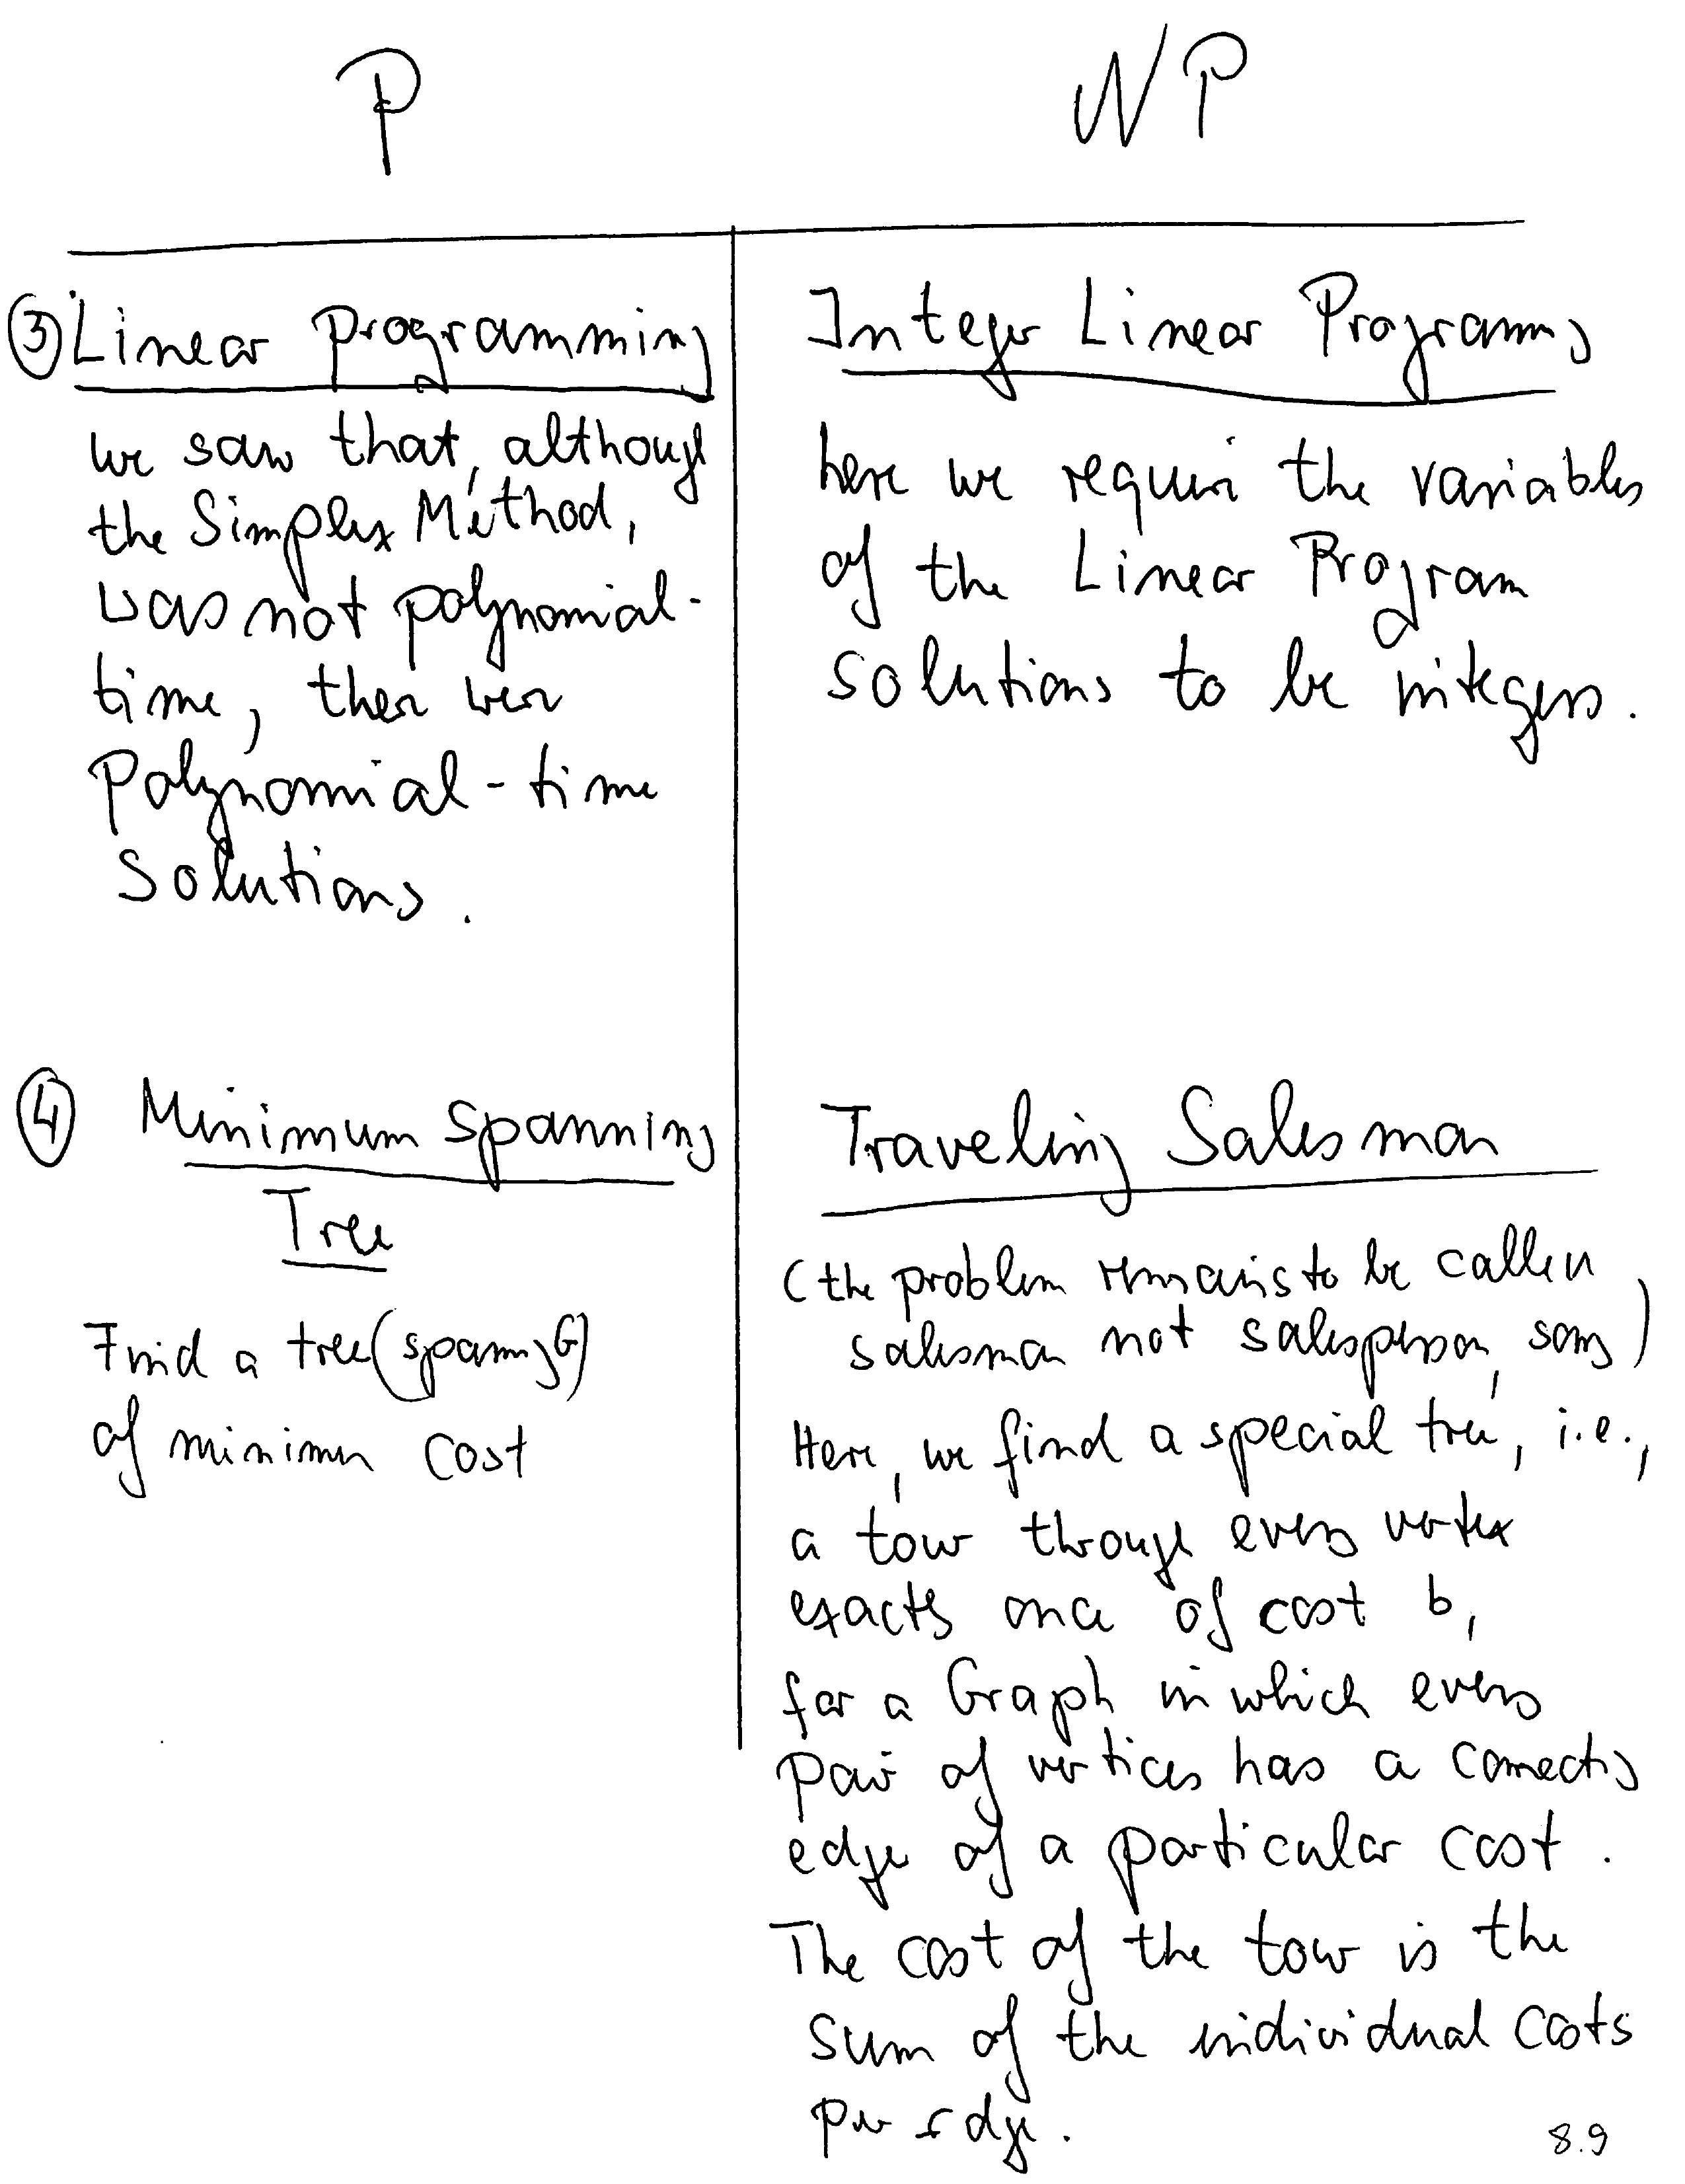 P
NP
③ Linear Programming
we saw that, although
the Simplex Method,
was not polynomial-
time, there were
Polynomial-time
Solutions.
Integer Linear Programming
here we require the variables
of the Linear Program
solutions to be integers.
④ Minimum Spanning
Tree
Find a tree (spanning G)
of minimum cost
Traveling Salesman
(the problem remains to be called
salesman not salesperson, sorry)
Here, we find a special tree, i.e.,
a tour through every vertex
exactly once of cost b,
for a Graph in which every
pair of vertices has a connecting
edge of a particular cost.
The cost of the tour is the
sum of the individual costs
per edge.
8.9